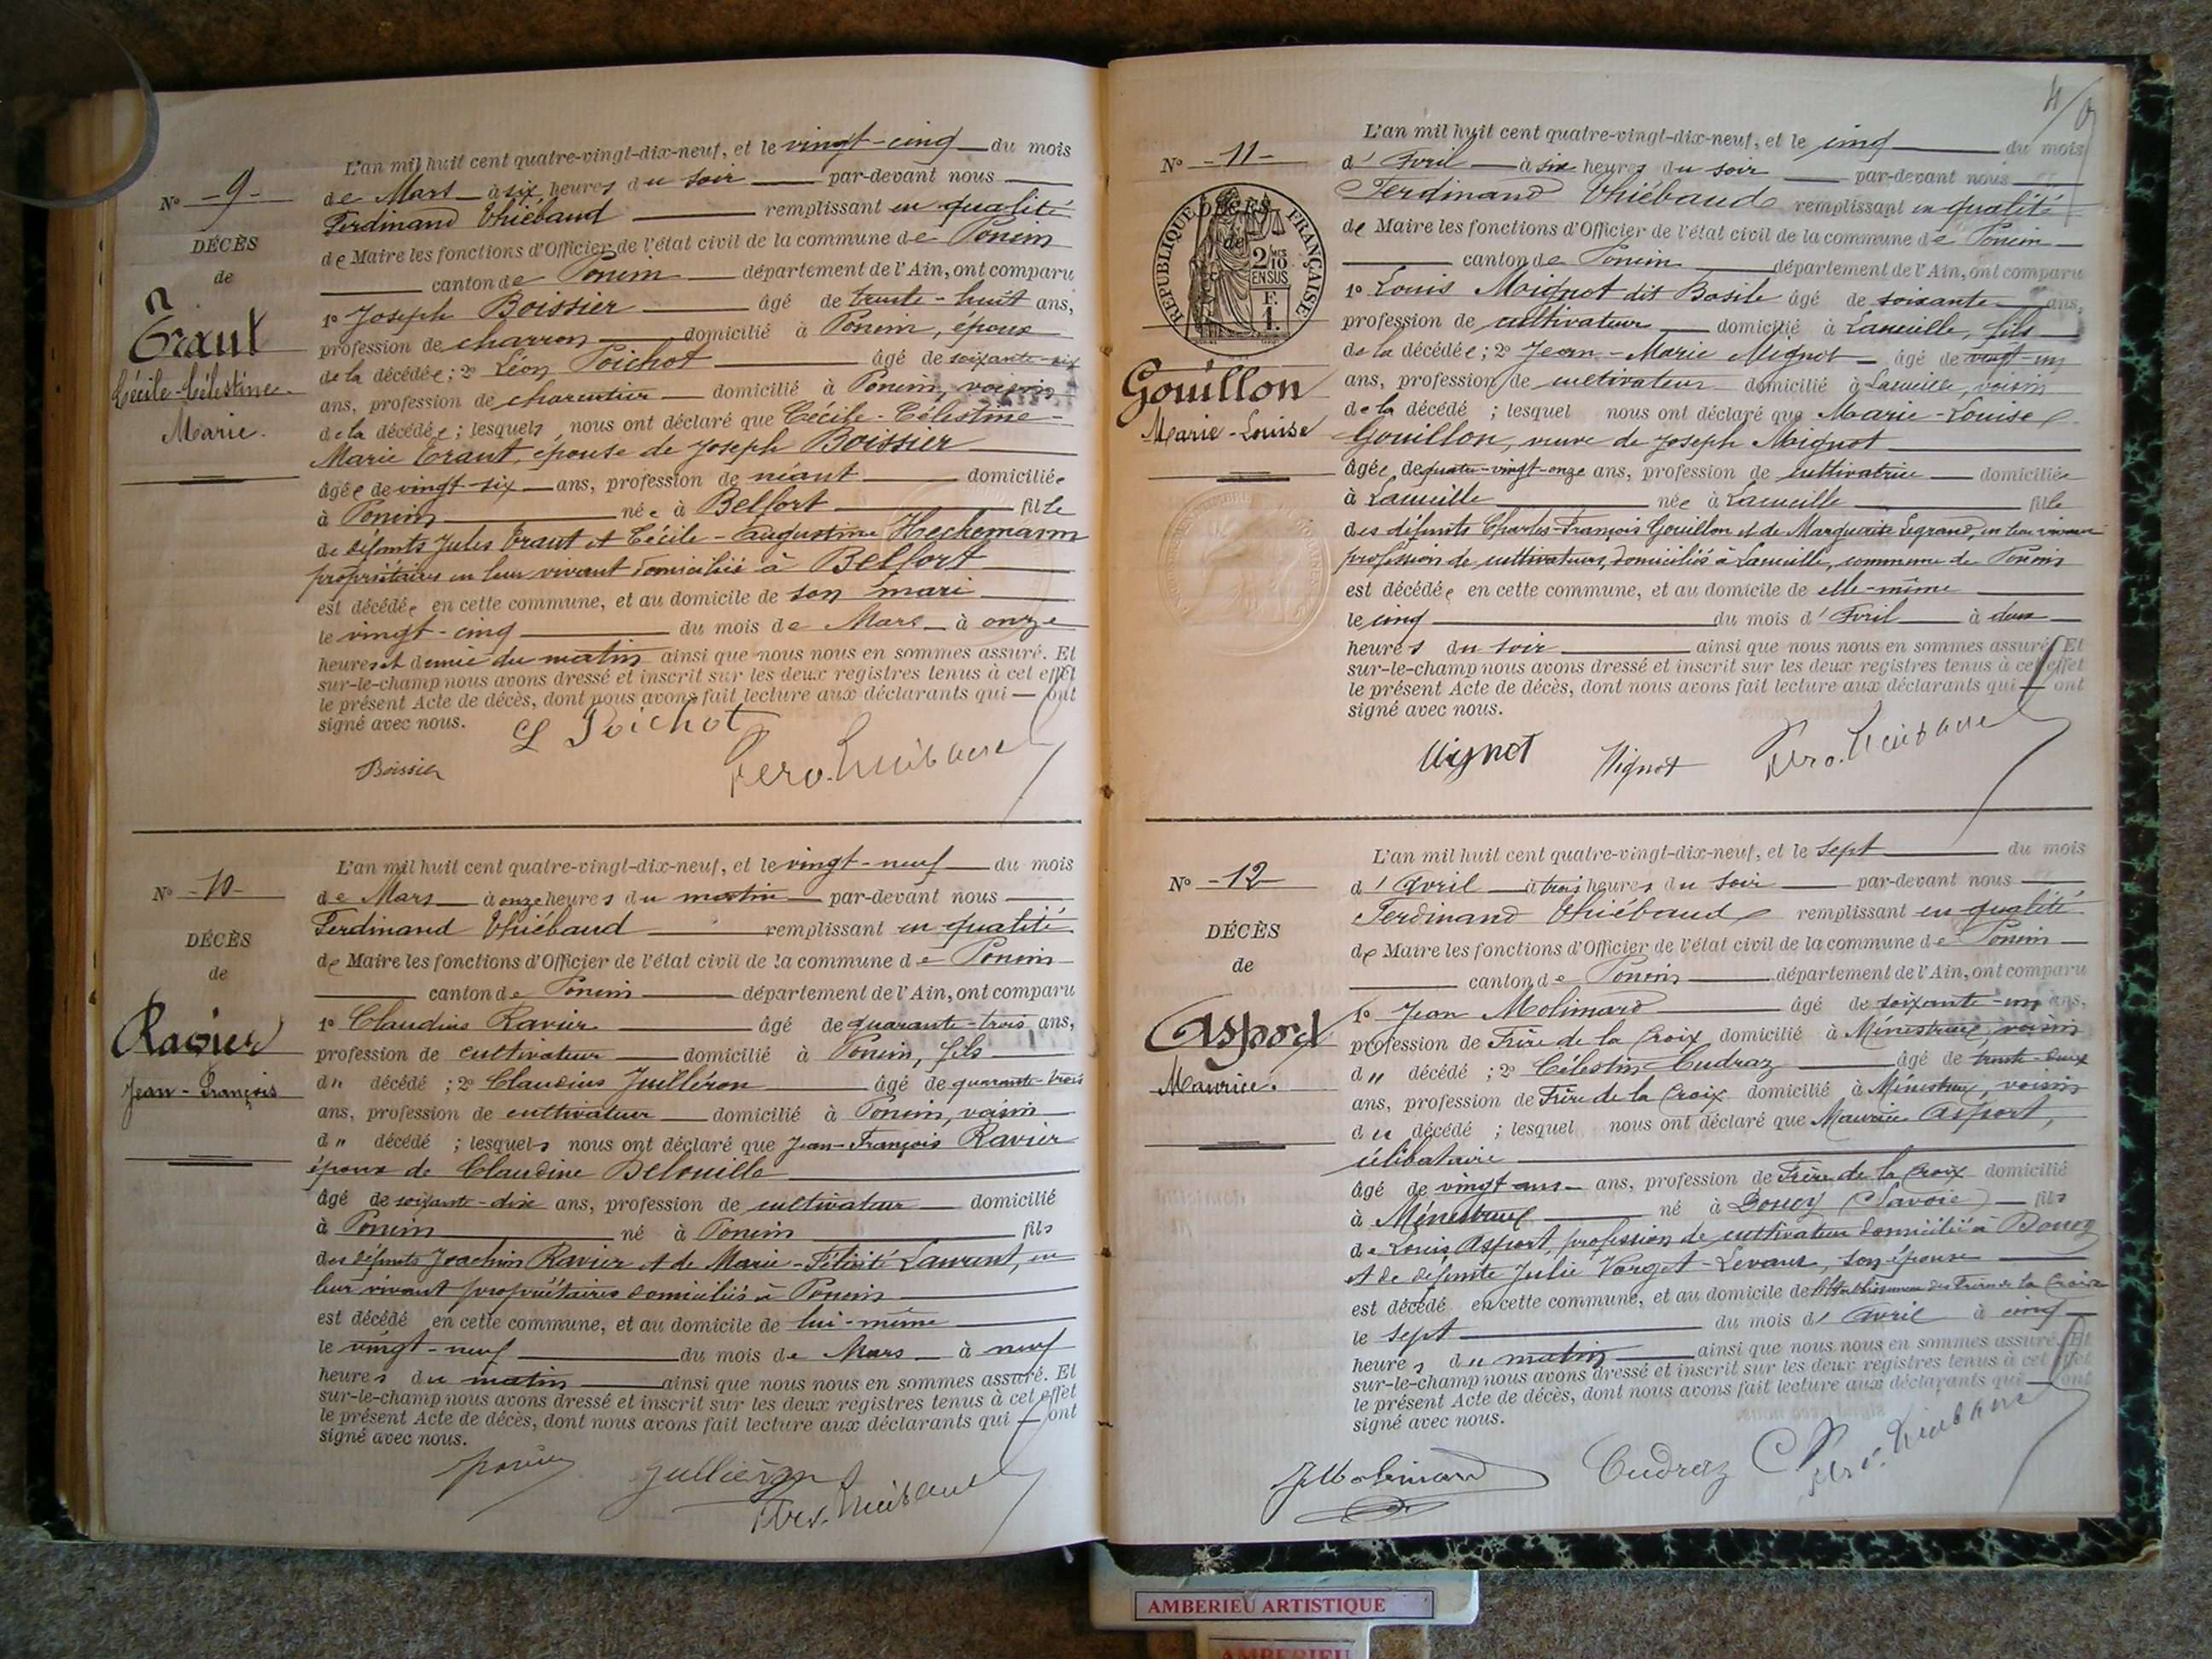 L'an mil huit cent quatre-vingt-dix-neuf, et le vingt-cinq du mois
N° -9-
de Mars à six heures du soir par-devant nous
Ferdinand Thiébaud remplissant en qualité
DÉCÈS
de Maire les fonctions d'Officier de l'état civil de la commune de Poncin
de
canton de Poncin département de l'Ain, ont comparu
1° Joseph Boissier âgé de trente-huit ans,
Traut
profession de charron domicilié à Poncin, époux
de la décédée; 2° Léon Poichot âgé de soixante-six
Cécile-Célestine-
ans, profession de charpentier domicilié à Poncin, voisin
Marie.
de la décédée; lesquels nous ont déclaré que Cécile-Célestine-
Marie Traut, épouse de Joseph Boissier
âgée de vingt-six ans, profession de néant domiciliée
à Poncin née à Belfort fille
de défunts Jules Traut et Cécile-Augustine Heckemann
propriétaires en leur vivant domiciliés à Belfort
est décédée en cette commune, et au domicile de son mari
le vingt-cinq du mois de Mars à onze
heures et demie du matin ainsi que nous nous en sommes assuré. Et
sur-le-champ nous avons dressé et inscrit sur les deux registres tenus à cet effet
le présent Acte de décès, dont nous avons fait lecture aux déclarants qui ont
signé avec nous.
L Poichot
Boissier
Ferd. Thiébaud
L'an mil huit cent quatre-vingt-dix-neuf, et le vingt-neuf du mois
N° -10-
de Mars à onze heures du matin par-devant nous
Ferdinand Thiébaud remplissant en qualité
DÉCÈS
de Maire les fonctions d'Officier de l'état civil de la commune de Poncin
de
canton de Poncin département de l'Ain, ont comparu
1° Claudius Ravier âgé de quarante-trois ans,
Ravier
profession de cultivateur domicilié à Poncin, fils
Jean-François
du décédé; 2° Claudius Juilléron âgé de quarante-trois
ans, profession de cultivateur domicilié à Poncin, voisin
du décédé; lesquels nous ont déclaré que Jean-François Ravier
époux de Claudine Delouille
âgé de soixante-dix ans, profession de cultivateur domicilié
à Poncin né à Poncin fils
des défunts Joachim Ravier et de Marie-Félicité Laurent, en
leur vivant propriétaires domiciliés à Poncin
est décédé en cette commune, et au domicile de lui-même
le vingt-neuf du mois de Mars à neuf
heures du matin ainsi que nous nous en sommes assuré. Et
sur-le-champ nous avons dressé et inscrit sur les deux registres tenus à cet effet
le présent Acte de décès, dont nous avons fait lecture aux déclarants qui ont
signé avec nous.
Ferd. Thiébaud
4
L'an mil huit cent quatre-vingt-dix-neuf, et le cinq du mois
N° -11-
d'Avril à six heures du soir par-devant nous
Ferdinand Thiébaud remplissant en qualité
RÉPUBLIQUE FRANÇAISE
DÉCÈS
de
2/10 EN SUS
F. 1.
de Maire les fonctions d'Officier de l'état civil de la commune de Poncin
canton de Poncin département de l'Ain, ont comparu
1° Louis Mignot dit Basile âgé de soixante ans,
profession de cultivateur domicilié à Lameille, fils
de la décédée; 2° Jean-Marie Mignot âgé de vingt-un
Gouillon
ans, profession de cultivateur domicilié à Lameille, voisin
Marie-Louise
de la décédé; lesquel nous ont déclaré que Marie-Louise
Gouillon, veuve de Joseph Mignot
âgée de quatre-vingt-onze ans, profession de cultivatrice domiciliée
à Lameille née à Lameille fille
des défunts Charles-François Gouillon et de Marguerite Legrand, en leur vivant
profession de cultivateurs, domiciliés à Lameille, commune de Poncin
est décédée en cette commune, et au domicile de elle-même
le cinq du mois d'Avril à deux
heures du soir ainsi que nous nous en sommes assuré. Et
sur-le-champ nous avons dressé et inscrit sur les deux registres tenus à cet effet
le présent Acte de décès, dont nous avons fait lecture aux déclarants qui ont
signé avec nous.
Mignot Mignot Ferd. Thiébaud
L'an mil huit cent quatre-vingt-dix-neuf, et le sept du mois
N° -12-
d'Avril à trois heures du soir par-devant nous
Ferdinand Thiébaud remplissant en qualité
DÉCÈS
de Maire les fonctions d'Officier de l'état civil de la commune de Poncin
de
canton de Poncin département de l'Ain, ont comparu
1° Jean Molimard âgé de soixante-un ans,
Aspord
profession de Frère de la Croix domicilié à Ménestruel, voisin
Maurice.
du décédé; 2° Célestin Cudraz âgé de trente-deux
ans, profession de Frère de la Croix domicilié à Ménestruel, voisin
du décédé; lesquel nous ont déclaré que Maurice Asport,
célibataire
âgé de vingt ans ans, profession de Frère de la Croix domicilié
à Ménestruel né à Doucy (Savoie) fils
de Louis Asport, profession de cultivateur domicilié à Doucy
et de défunte Julie Vorget-Levaux, son épouse
est décédé en cette commune, et au domicile de l'établissement des Frères de la Croix
le sept du mois d'Avril à cinq
heures du matin ainsi que nous nous en sommes assuré. Et
sur-le-champ nous avons dressé et inscrit sur les deux registres tenus à cet effet
le présent Acte de décès, dont nous avons fait lecture aux déclarants qui ont
signé avec nous.
J Molimard Cudraz C Ferd. Thiébaud
AMBERIEU ARTISTIQUE
AMBERIEU